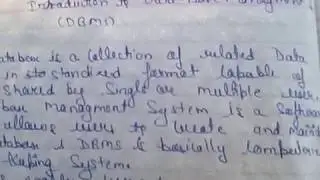 Introduction to Data Base
(DBMS)
is a Collection of related Data
in sta standired format Capable of
shared by Single are multiple user,
managment System is a Software
allows users to Create and
DBMS is basically
Keeping System.